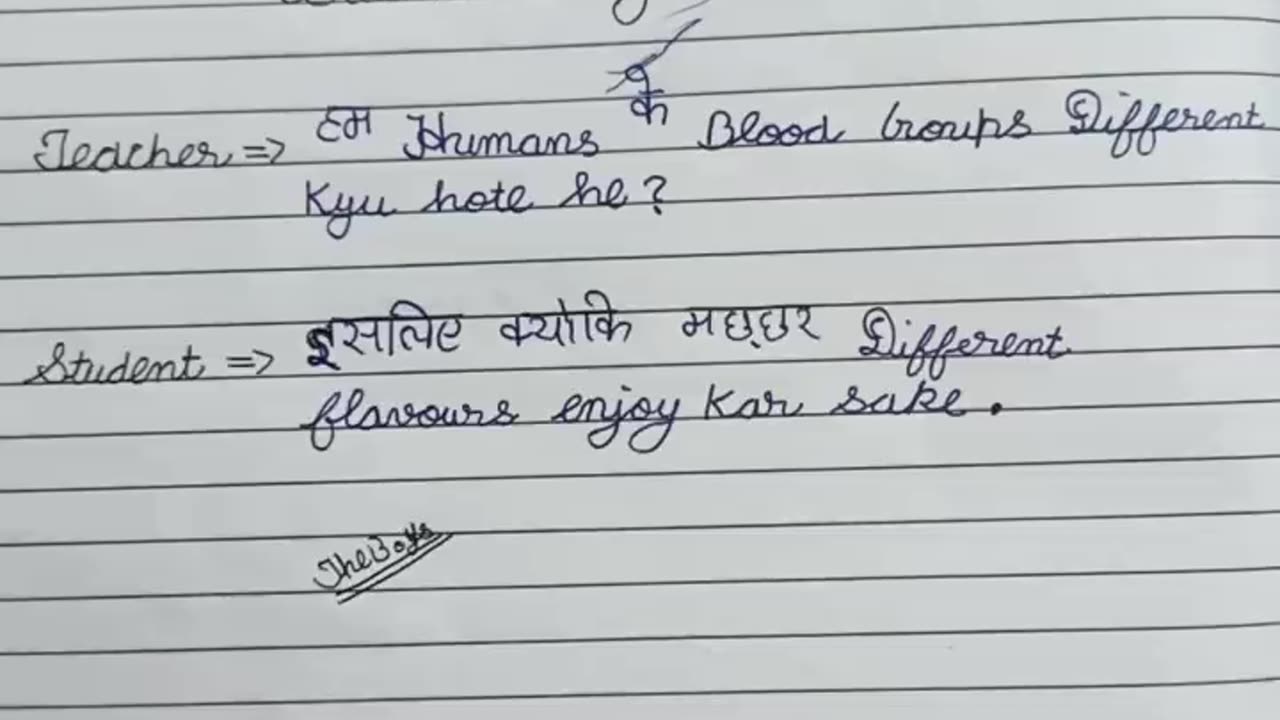 Teacher => हम Humans के Blood Groups Different
Kyu hote he?
Student => इसलिए क्योकि मछ्छर Different
flavours enjoy Kar sake.
TheBoys